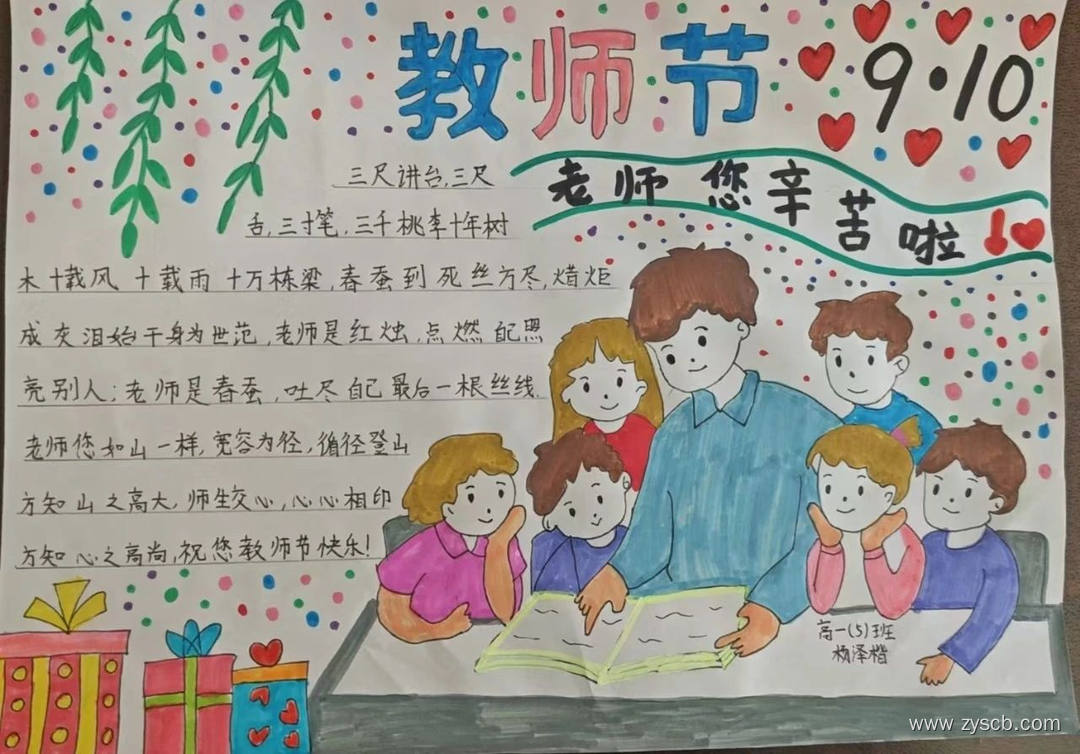 教师节
9·10
老师您辛苦啦!
三尺讲台,三尺
舌,三寸笔,三千桃李十年树
木十载风十载雨十万栋梁,春蚕到死丝方尽,烛炬
成灰泪始干身为世范,老师是红烛,点燃自己照
亮别人;老师是春蚕,吐尽自己最后一根丝线.
老师您如山一样,宽容为径,循径登山
方知山之高大,师生交心,心心相印
方知心之高尚,祝您教师节快乐!
高一(5)班
杨泽楷
www.zyscb.com